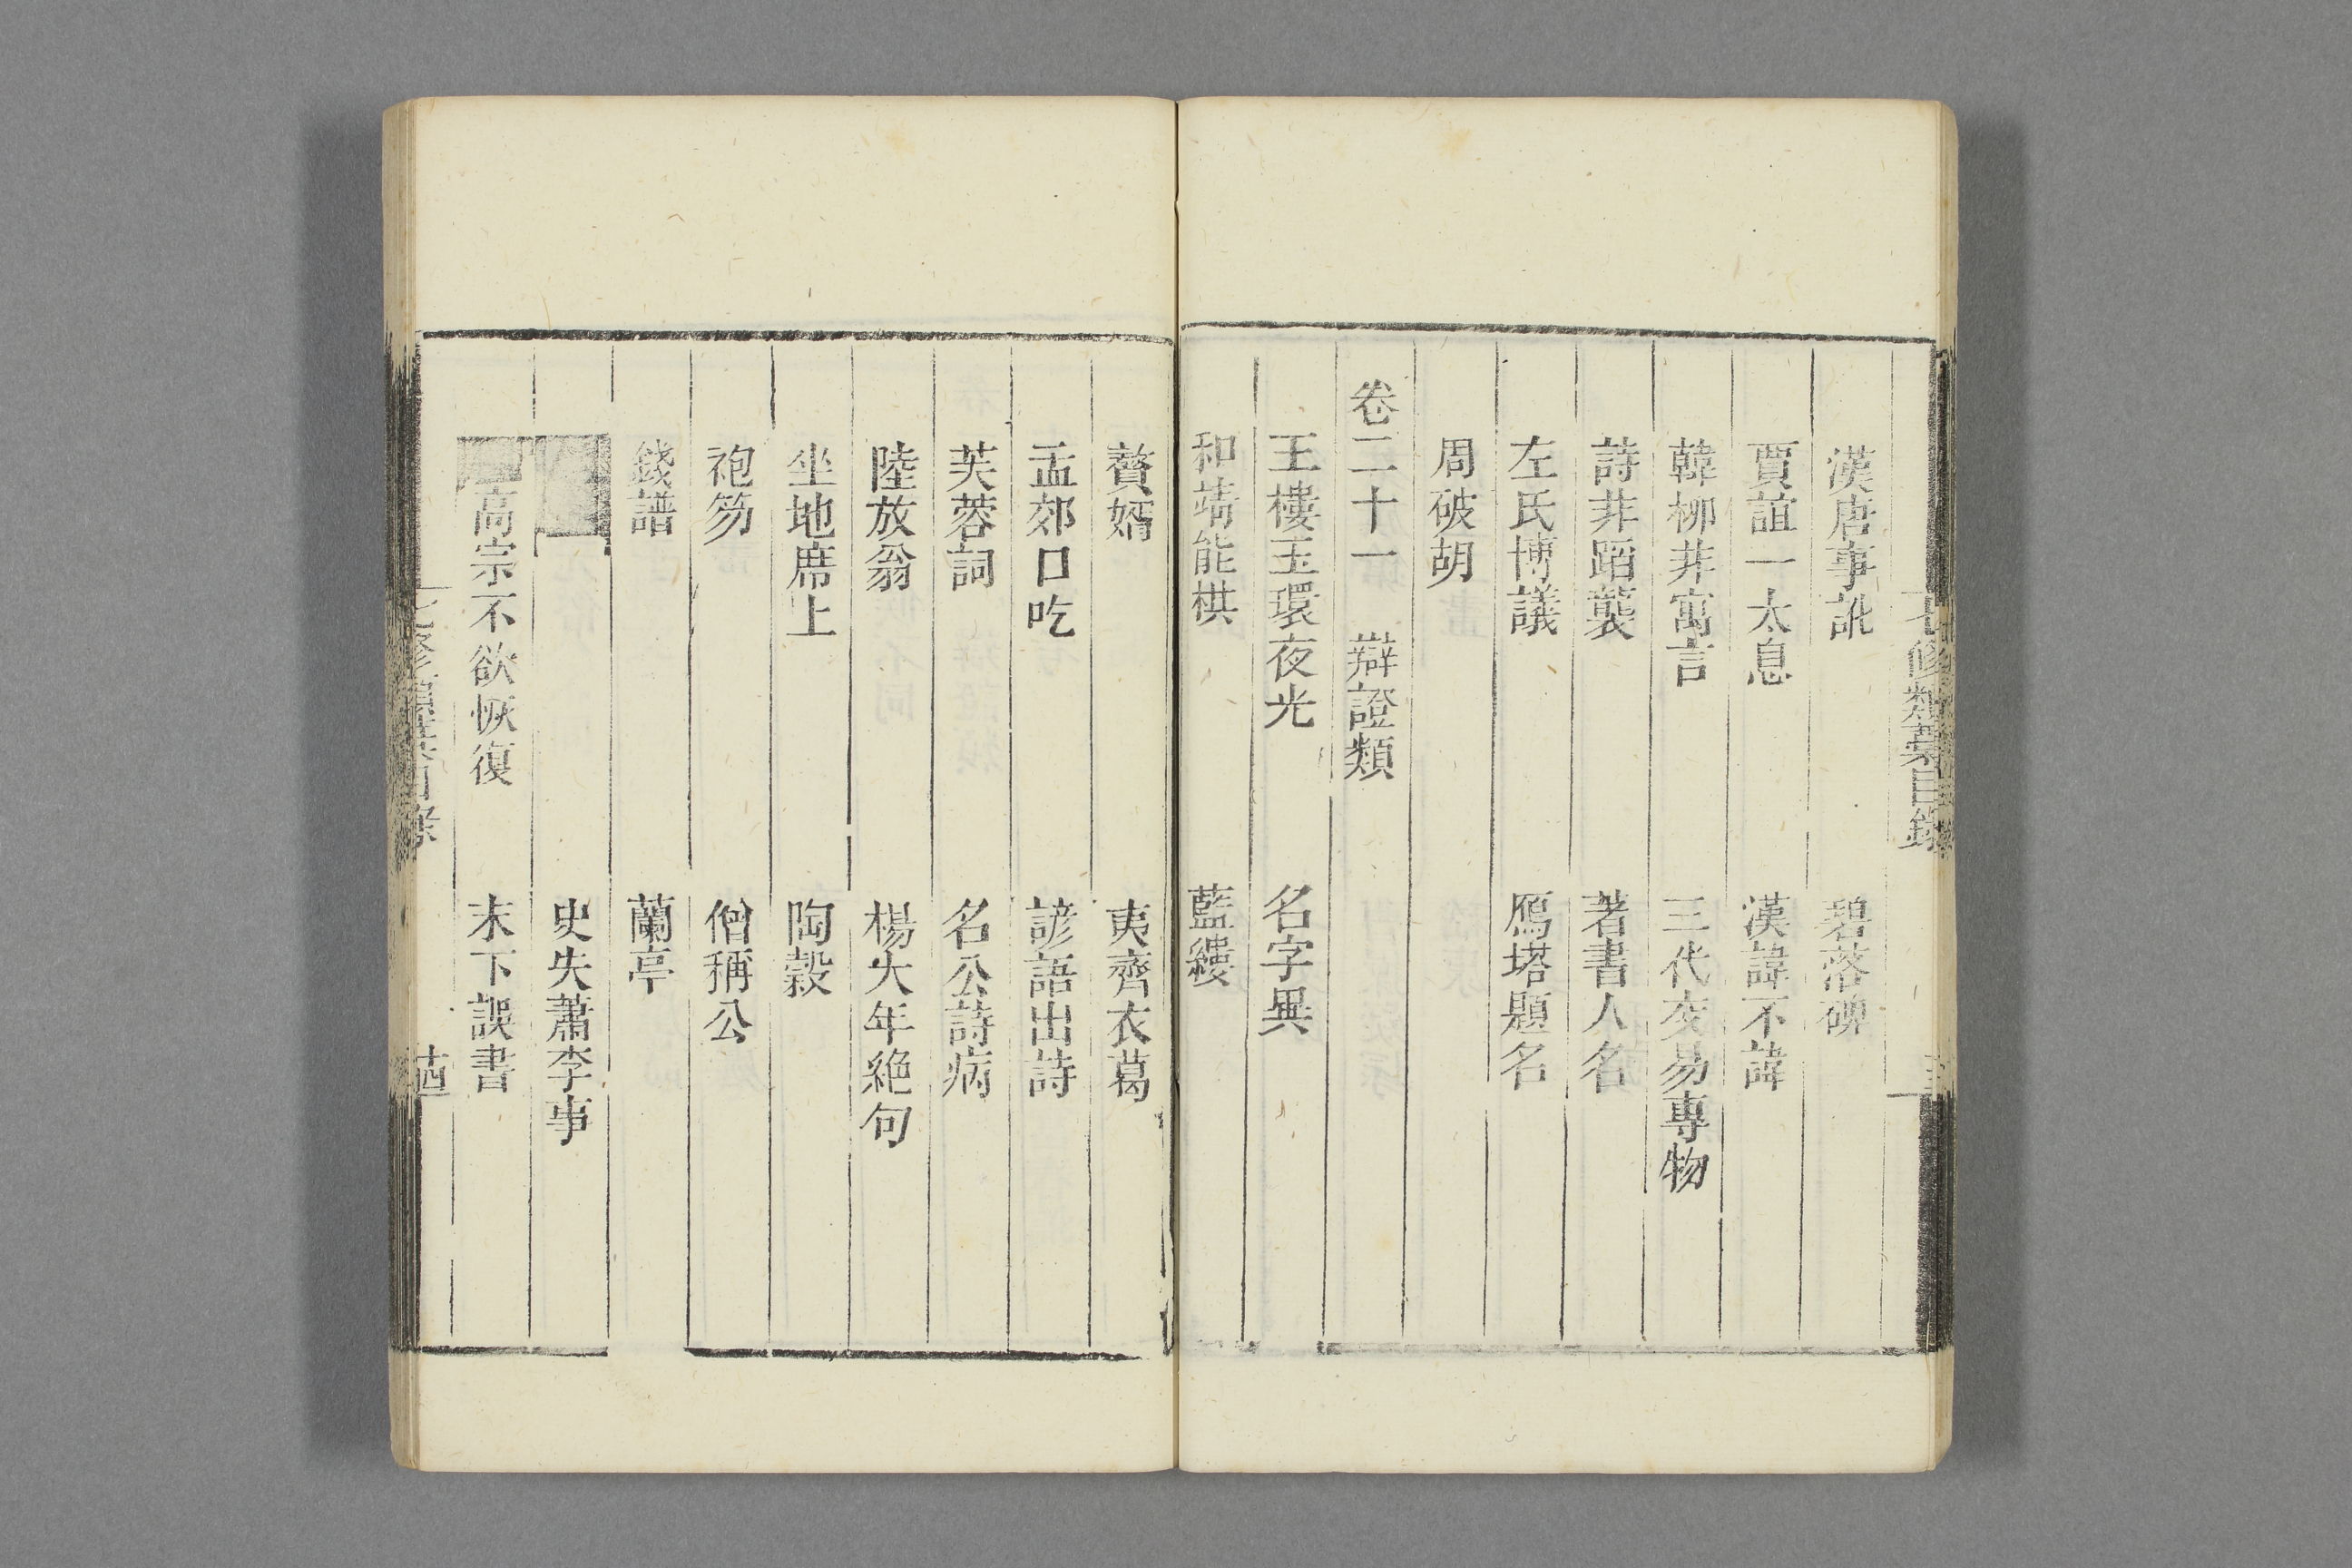 七修類稾目錄
漢唐事訛 碧落碑
賈誼一太息 漢諱不諱
韓栁非寓言 三代交易專物
詩非蹈襲 著書人名
左氏博議 鴈塔題名
周破胡
卷二十一 辯證類
王樓玉環夜光 名字異
和靖能棋 藍縷
贅婿 夷齊衣葛
孟郊口吃 諺語出詩
芙蓉詞 名公詩病
陸放翁 楊大年絕句
坐地席上 陶穀
袍笏 僧稱公
錢譜 蘭亭
史失蕭李事
高宗不欲恢復 末下誤書